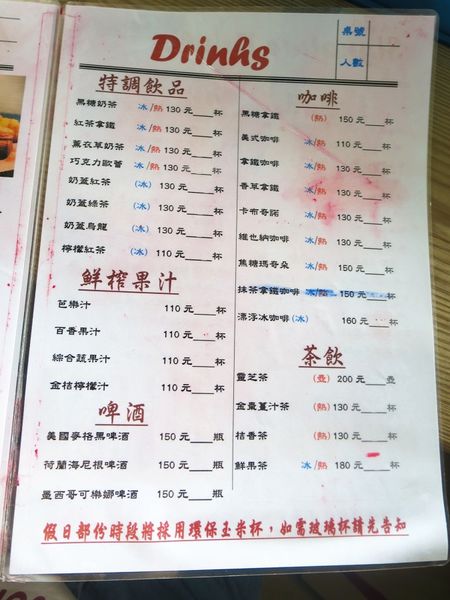 Drinhs
桌號
人數
特調飲品
黑糖奶茶 冰/熱 130 元___杯
紅茶拿鐵 冰/熱 130 元___杯
薰衣草奶茶 冰/熱 130 元___杯
巧克力歐蕾 冰/熱 130 元___杯
奶蓋紅茶 (冰) 130 元___杯
奶蓋綠茶 (冰) 130 元___杯
奶蓋烏龍 (冰) 130 元___杯
檸檬紅茶 (冰) 110 元___杯
鮮榨果汁
芭樂汁 110 元___杯
百香果汁 110 元___杯
綜合蔬果汁 110 元___杯
金桔檸檬汁 110 元___杯
啤酒
美國麥格黑啤酒 150 元___瓶
荷蘭海尼根啤酒 150 元___瓶
墨西哥可樂娜啤酒 150 元___瓶
咖啡
黑糖拿鐵 (熱) 150 元___杯
美式咖啡 冰/熱 110 元___杯
拿鐵咖啡 冰/熱 130 元___杯
香草拿鐵 冰/熱 130 元___杯
卡布奇諾 冰/熱 130 元___杯
維也納咖啡 冰/熱 130 元___杯
焦糖瑪奇朵 冰/熱 150 元___杯
抹茶拿鐵咖啡 冰/熱 150 元___杯
漂浮冰咖啡 (冰) 160 元___杯
茶飲
靈芝茶 (壺) 200 元___壺
金棗薑汁茶 (熱) 130 元___杯
桔香茶 (熱) 130 元___杯
鮮果茶 冰/熱 180 元___杯
假日部份時段將採用環保玉米杯，如需玻璃杯請先告知